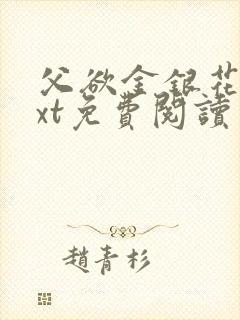 父欲金银花
xt免費閱讀
趙青杉